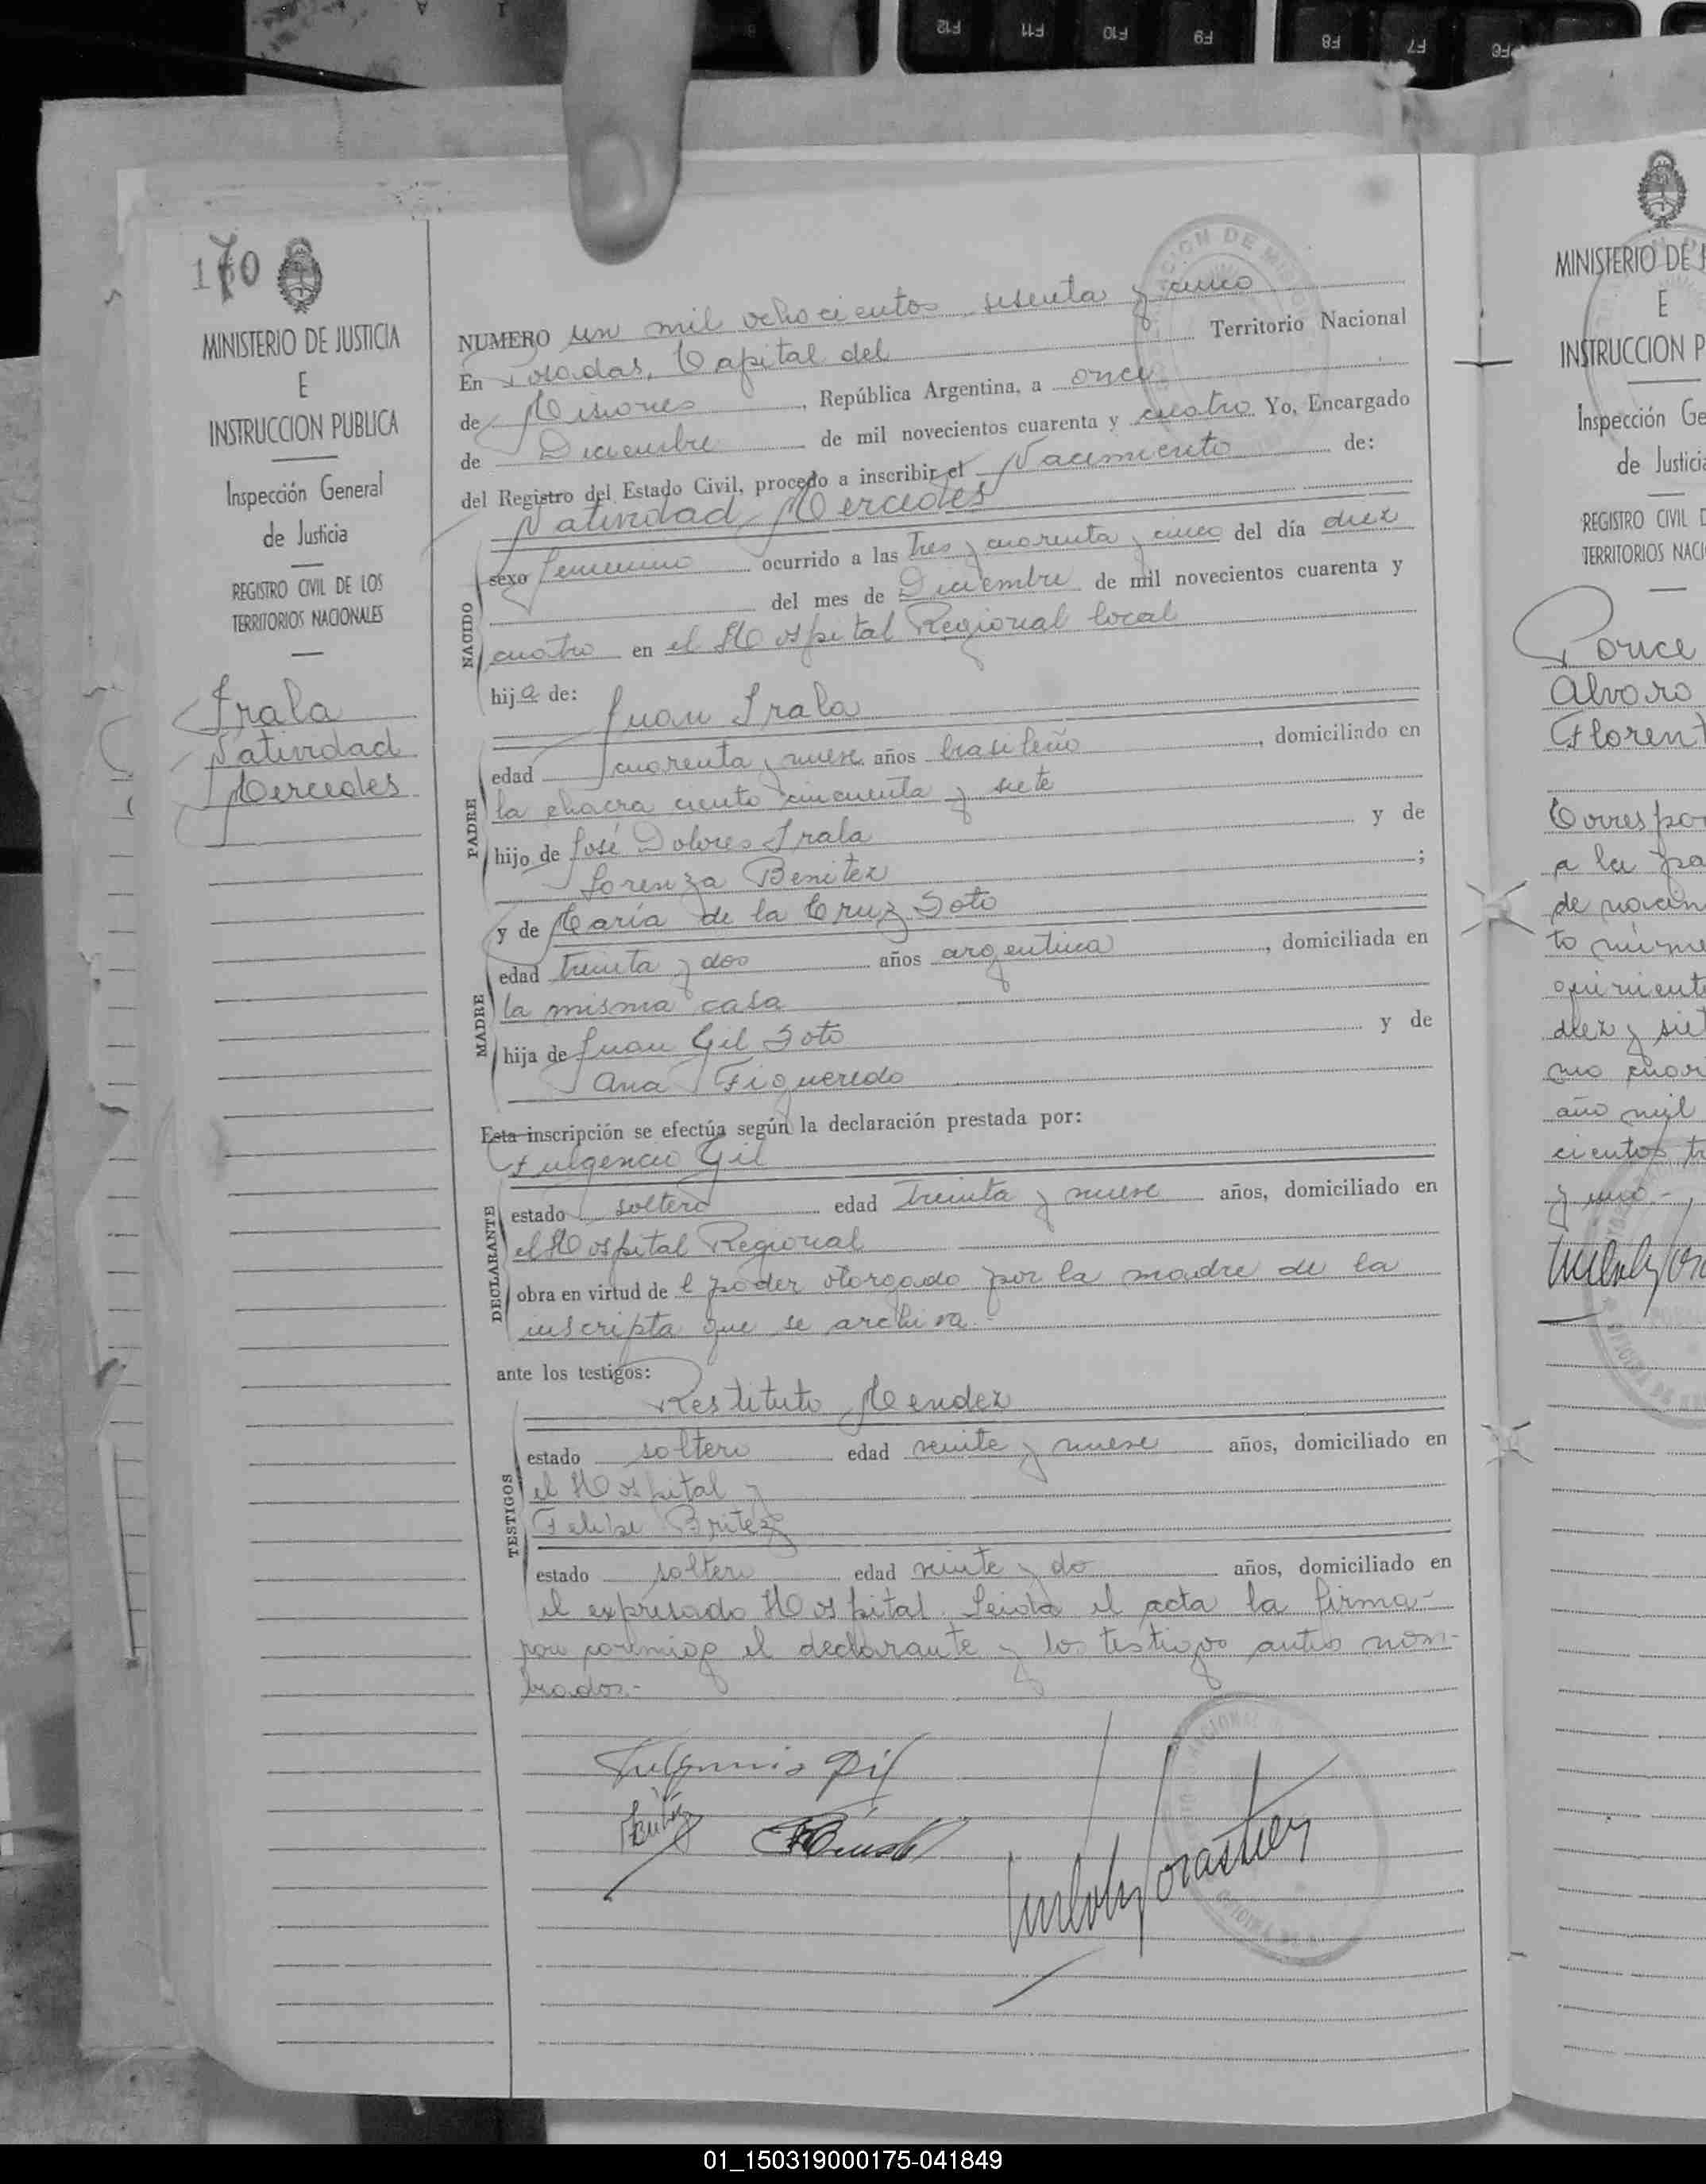 170
MINISTERIO DE JUSTICIA
E
INSTRUCCION PUBLICA
Inspección General
de Justicia
REGISTRO CIVIL DE LOS
TERRITORIOS NACIONALES
Irala
Natividad
Mercedes
NUMERO un mil ochocientos sesenta y cinco
En Posadas, Capital del Territorio Nacional
de Misiones, República Argentina, a once
de Diciembre de mil novecientos cuarenta y cuatro Yo, Encargado
del Registro del Estado Civil, procedo a inscribir el Nacimiento de:
Natividad Mercedes
NACIDO
sexo femenino ocurrido a las tres y cuarenta y cinco del día diez
del mes de Diciembre de mil novecientos cuarenta y
cuatro en el Hospital Regional local
hija de:
Juan Irala
PADRE
edad cuarenta y nueve años brasileño, domiciliado en
la chacra ciento cincuenta y siete
hijo de José Dolores Irala y de
Lorenza Benitez ;
y de María de la Cruz Soto
MADRE
edad treinta y dos años argentina, domiciliada en
la misma casa
hija de Juan Gil Soto y de
Ana Figueredo
Esta inscripción se efectúa según la declaración prestada por:
Fulgencio Gil
DECLARANTE
estado soltero edad treinta y nueve años, domiciliado en
el Hospital Regional
obra en virtud de l poder otorgado por la madre de la
inscripta que se archiva.
ante los testigos:
Restituto Mendez
TESTIGOS
estado soltero edad veinte y nueve años, domiciliado en
el Hospital y
Felipe Britez
estado soltero edad veinte y do años, domiciliado en
el expresado Hospital. Leida el acta la firma-
ron conmigo el declarante y los testigos antes nom-
brados.-
Fulgencio Gil
MINISTERIO DE J
E
INSTRUCCION P
Inspección Ge
de Justicia
REGISTRO CIVIL D
TERRITORIOS NACI
Ponce
Alvaro
Florent
Correspon
a la pa
de nacin
to núme
quinient
diez y sie
mo cuar
año mil
cientos tr
y uno.-
F12 F11 F10 F9 F8 F7 F6
01_150319000175-041849